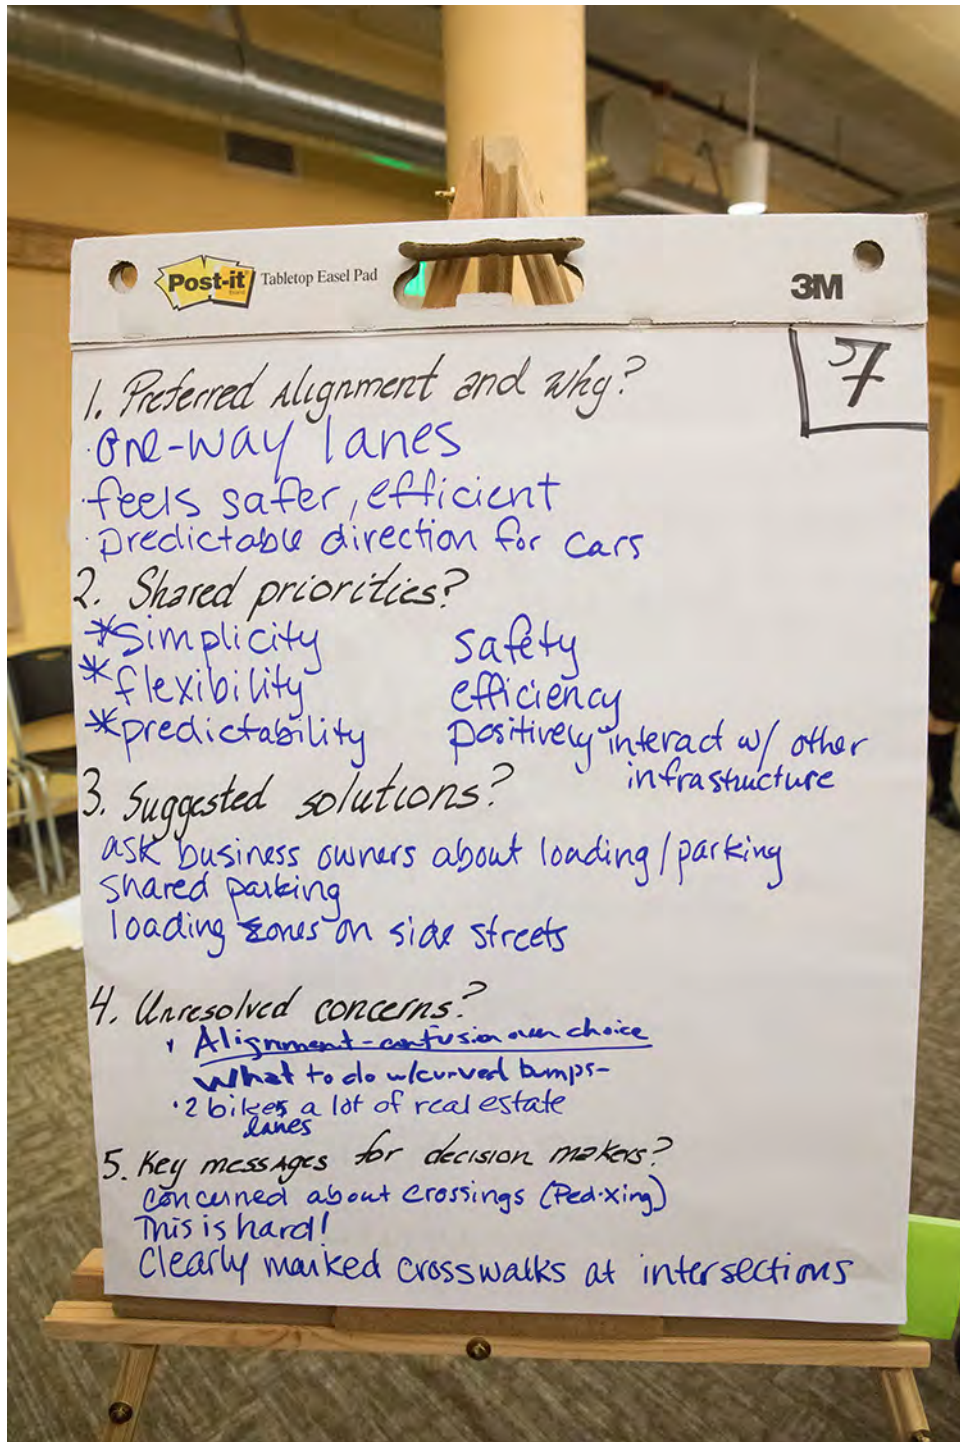 Post-it Tabletop Easel Pad
Brand
3M
7
1. Preferred Alignment and why?
· one-way lanes
· feels safer, efficient
· predictable direction for cars
2. Shared priorities?
* simplicity safety
* flexibility efficiency
* predictability positively interact w/ other
infrastructure
3. Suggested solutions?
ask business owners about loading/parking
shared parking
loading zones on side streets
4. Unresolved concerns?
· Alignment - confusion over choice
What to do w/curved bumps-
· 2 bikes a lot of real estate
lanes
5. Key messages for decision makers?
concerned about crossings (Ped-xing)
This is hard!
Clearly marked crosswalks at intersections